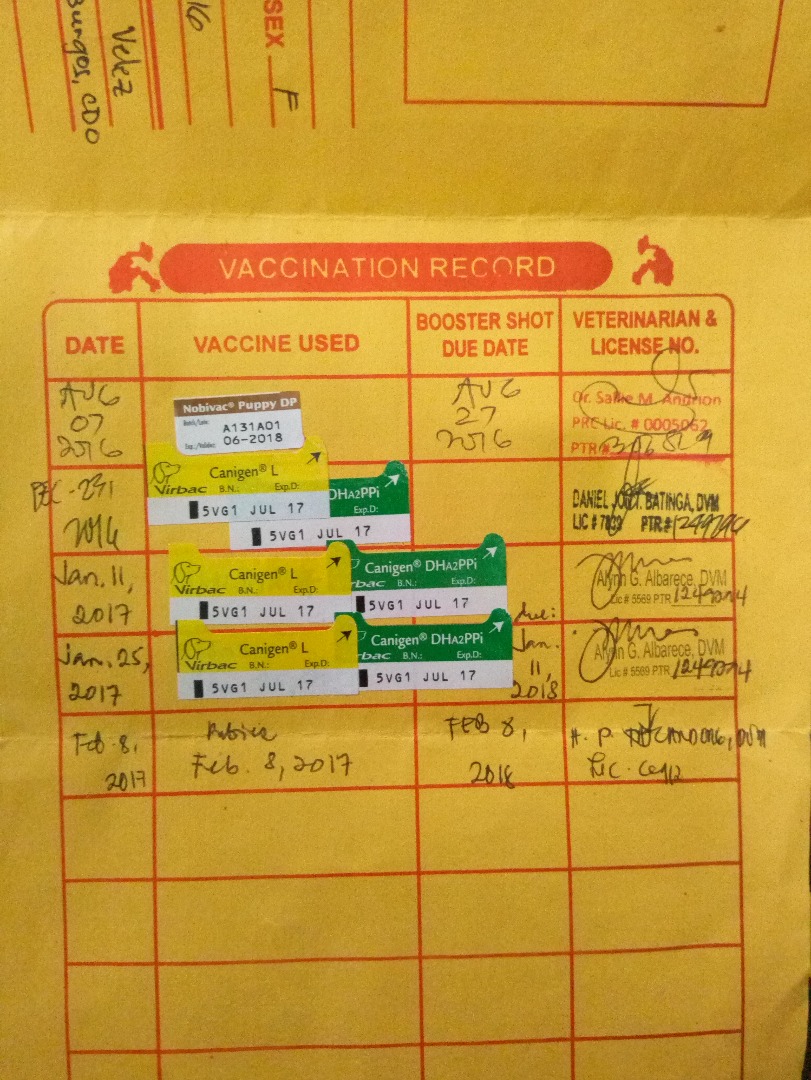 SEX F
16
Velez
Burgos, CDO
VACCINATION RECORD
DATE
VACCINE USED
BOOSTER SHOT
DUE DATE
VETERINARIAN &
LICENSE NO.
AUG
07
2016
Nobivac® Puppy DP
A131A01
06-2018
AUG
27
2016
Dr. Sallie M. Andrion
PRC Lic. # 0005062
PTR #
2016
Canigen® L
Virbac B.N.: Exp.D:
5VG1 JUL 17
DHA2PPi
Exp.D:
5VG1 JUL 17
BATINGA, DVM
LIC # PTR #
Jan. 11,
2017
Canigen® L
Virbac B.N.: Exp.D:
5VG1 JUL 17
Canigen® DHA2PPi
bac B.N.: Exp.D:
5VG1 JUL 17
Alynn G. Albarece, DVM
Lic # 5569 PTR 1249294
Jan. 25,
2017
Canigen® L
Virbac B.N.: Exp.D:
5VG1 JUL 17
Canigen® DHA2PPi
bac B.N.: Exp.D:
5VG1 JUL 17
due:
Jan.
11,
2018
Alynn G. Albarece, DVM
Lic # 5569 PTR 1249294
Feb. 8,
2017
Rabies
Feb. 8, 2017
FEB 8,
2018